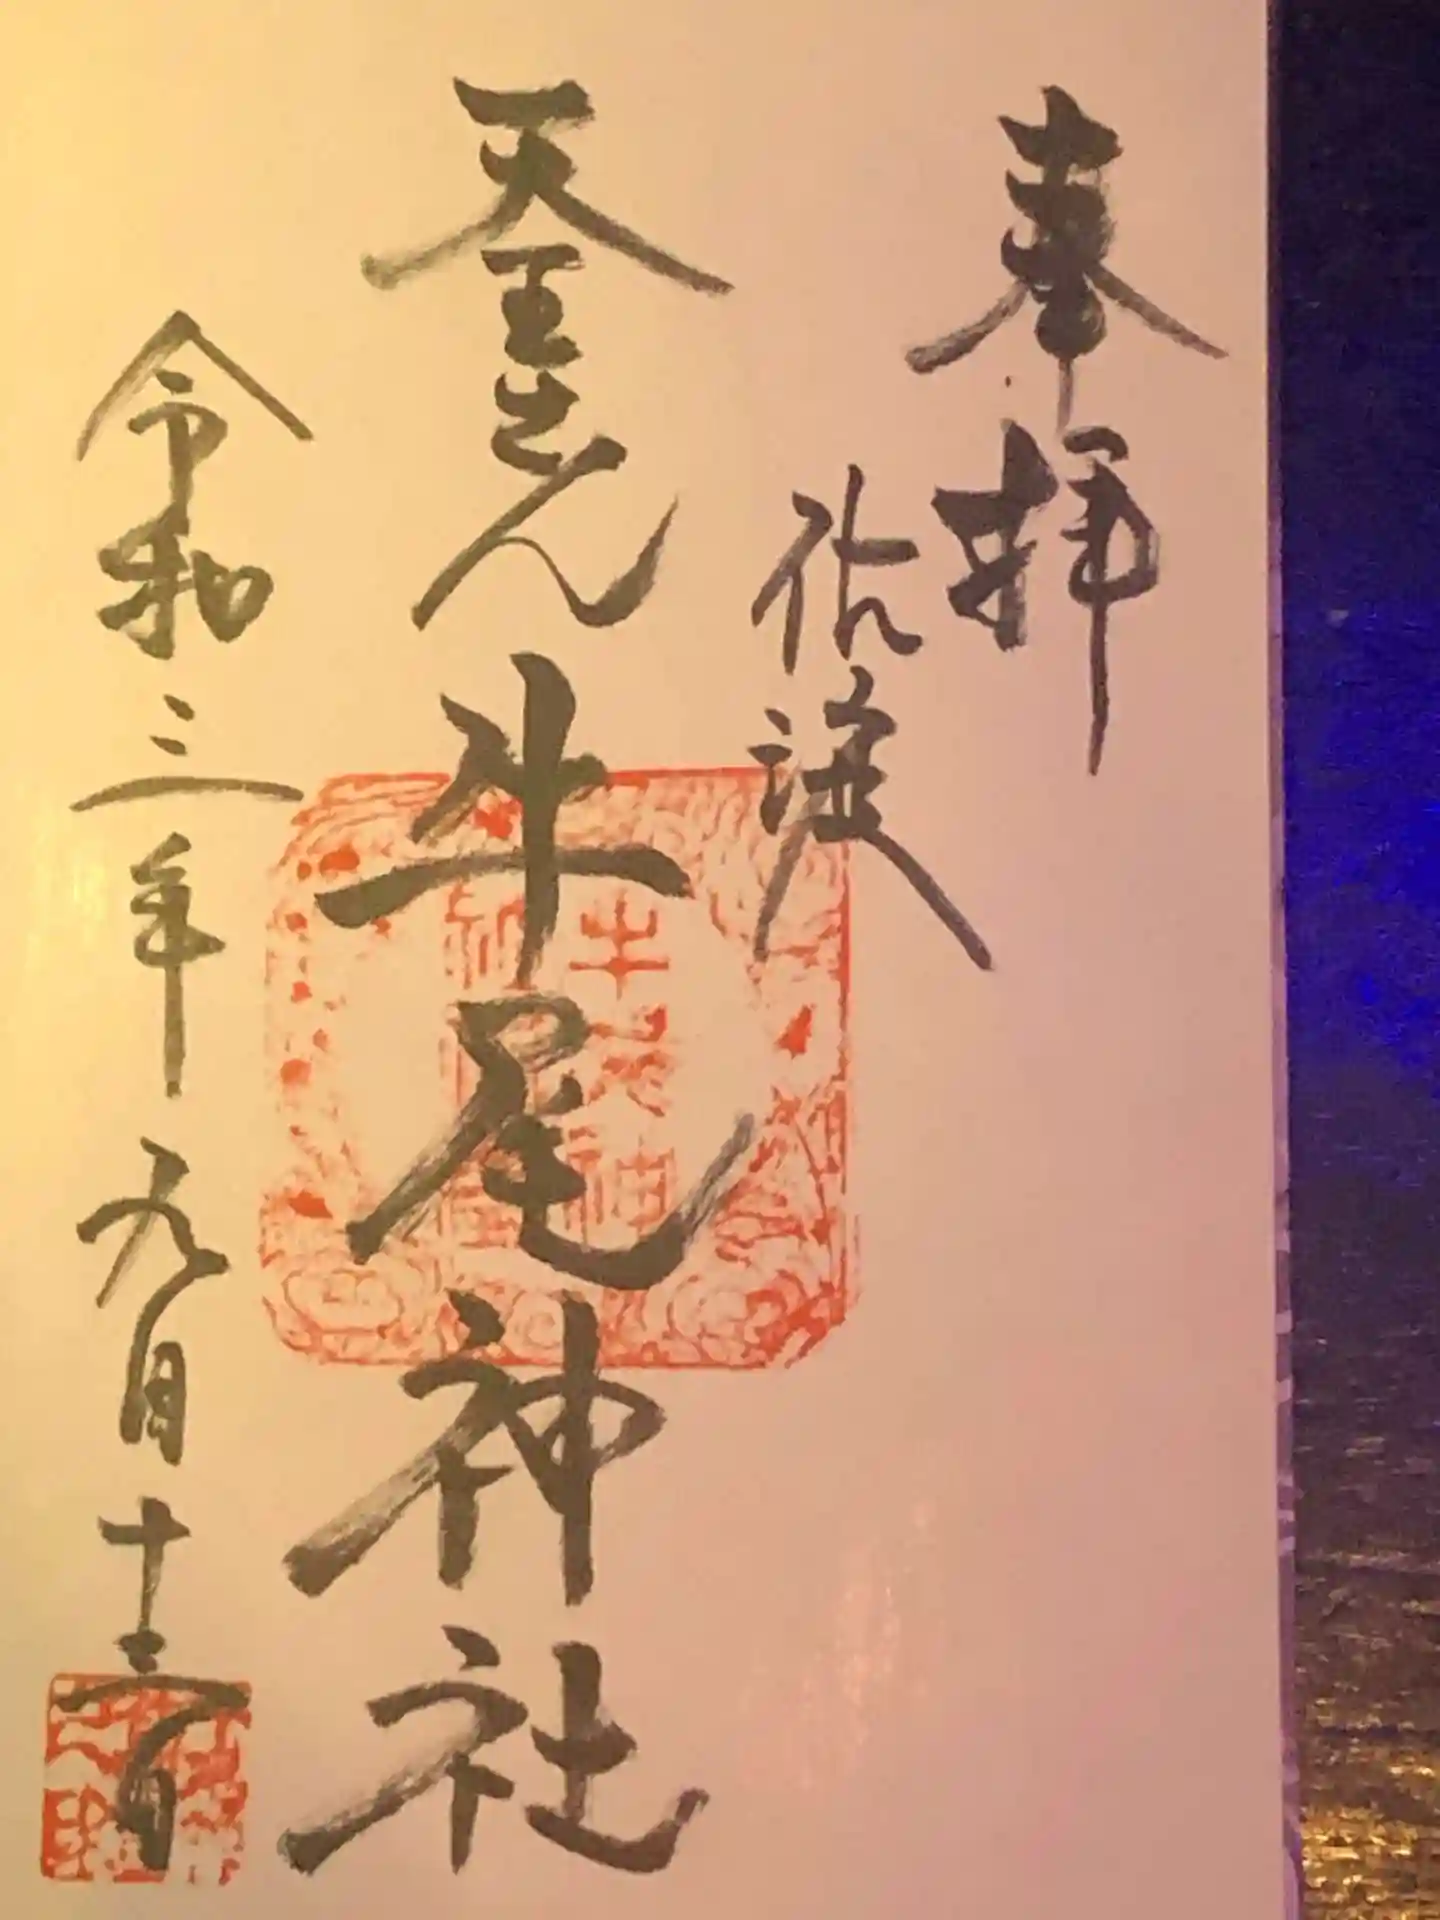 奉拝
佐渡
天王さん 牛尾神社
令和三年九月十三日